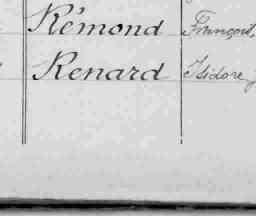 Rémond François,
Renard Isidore J